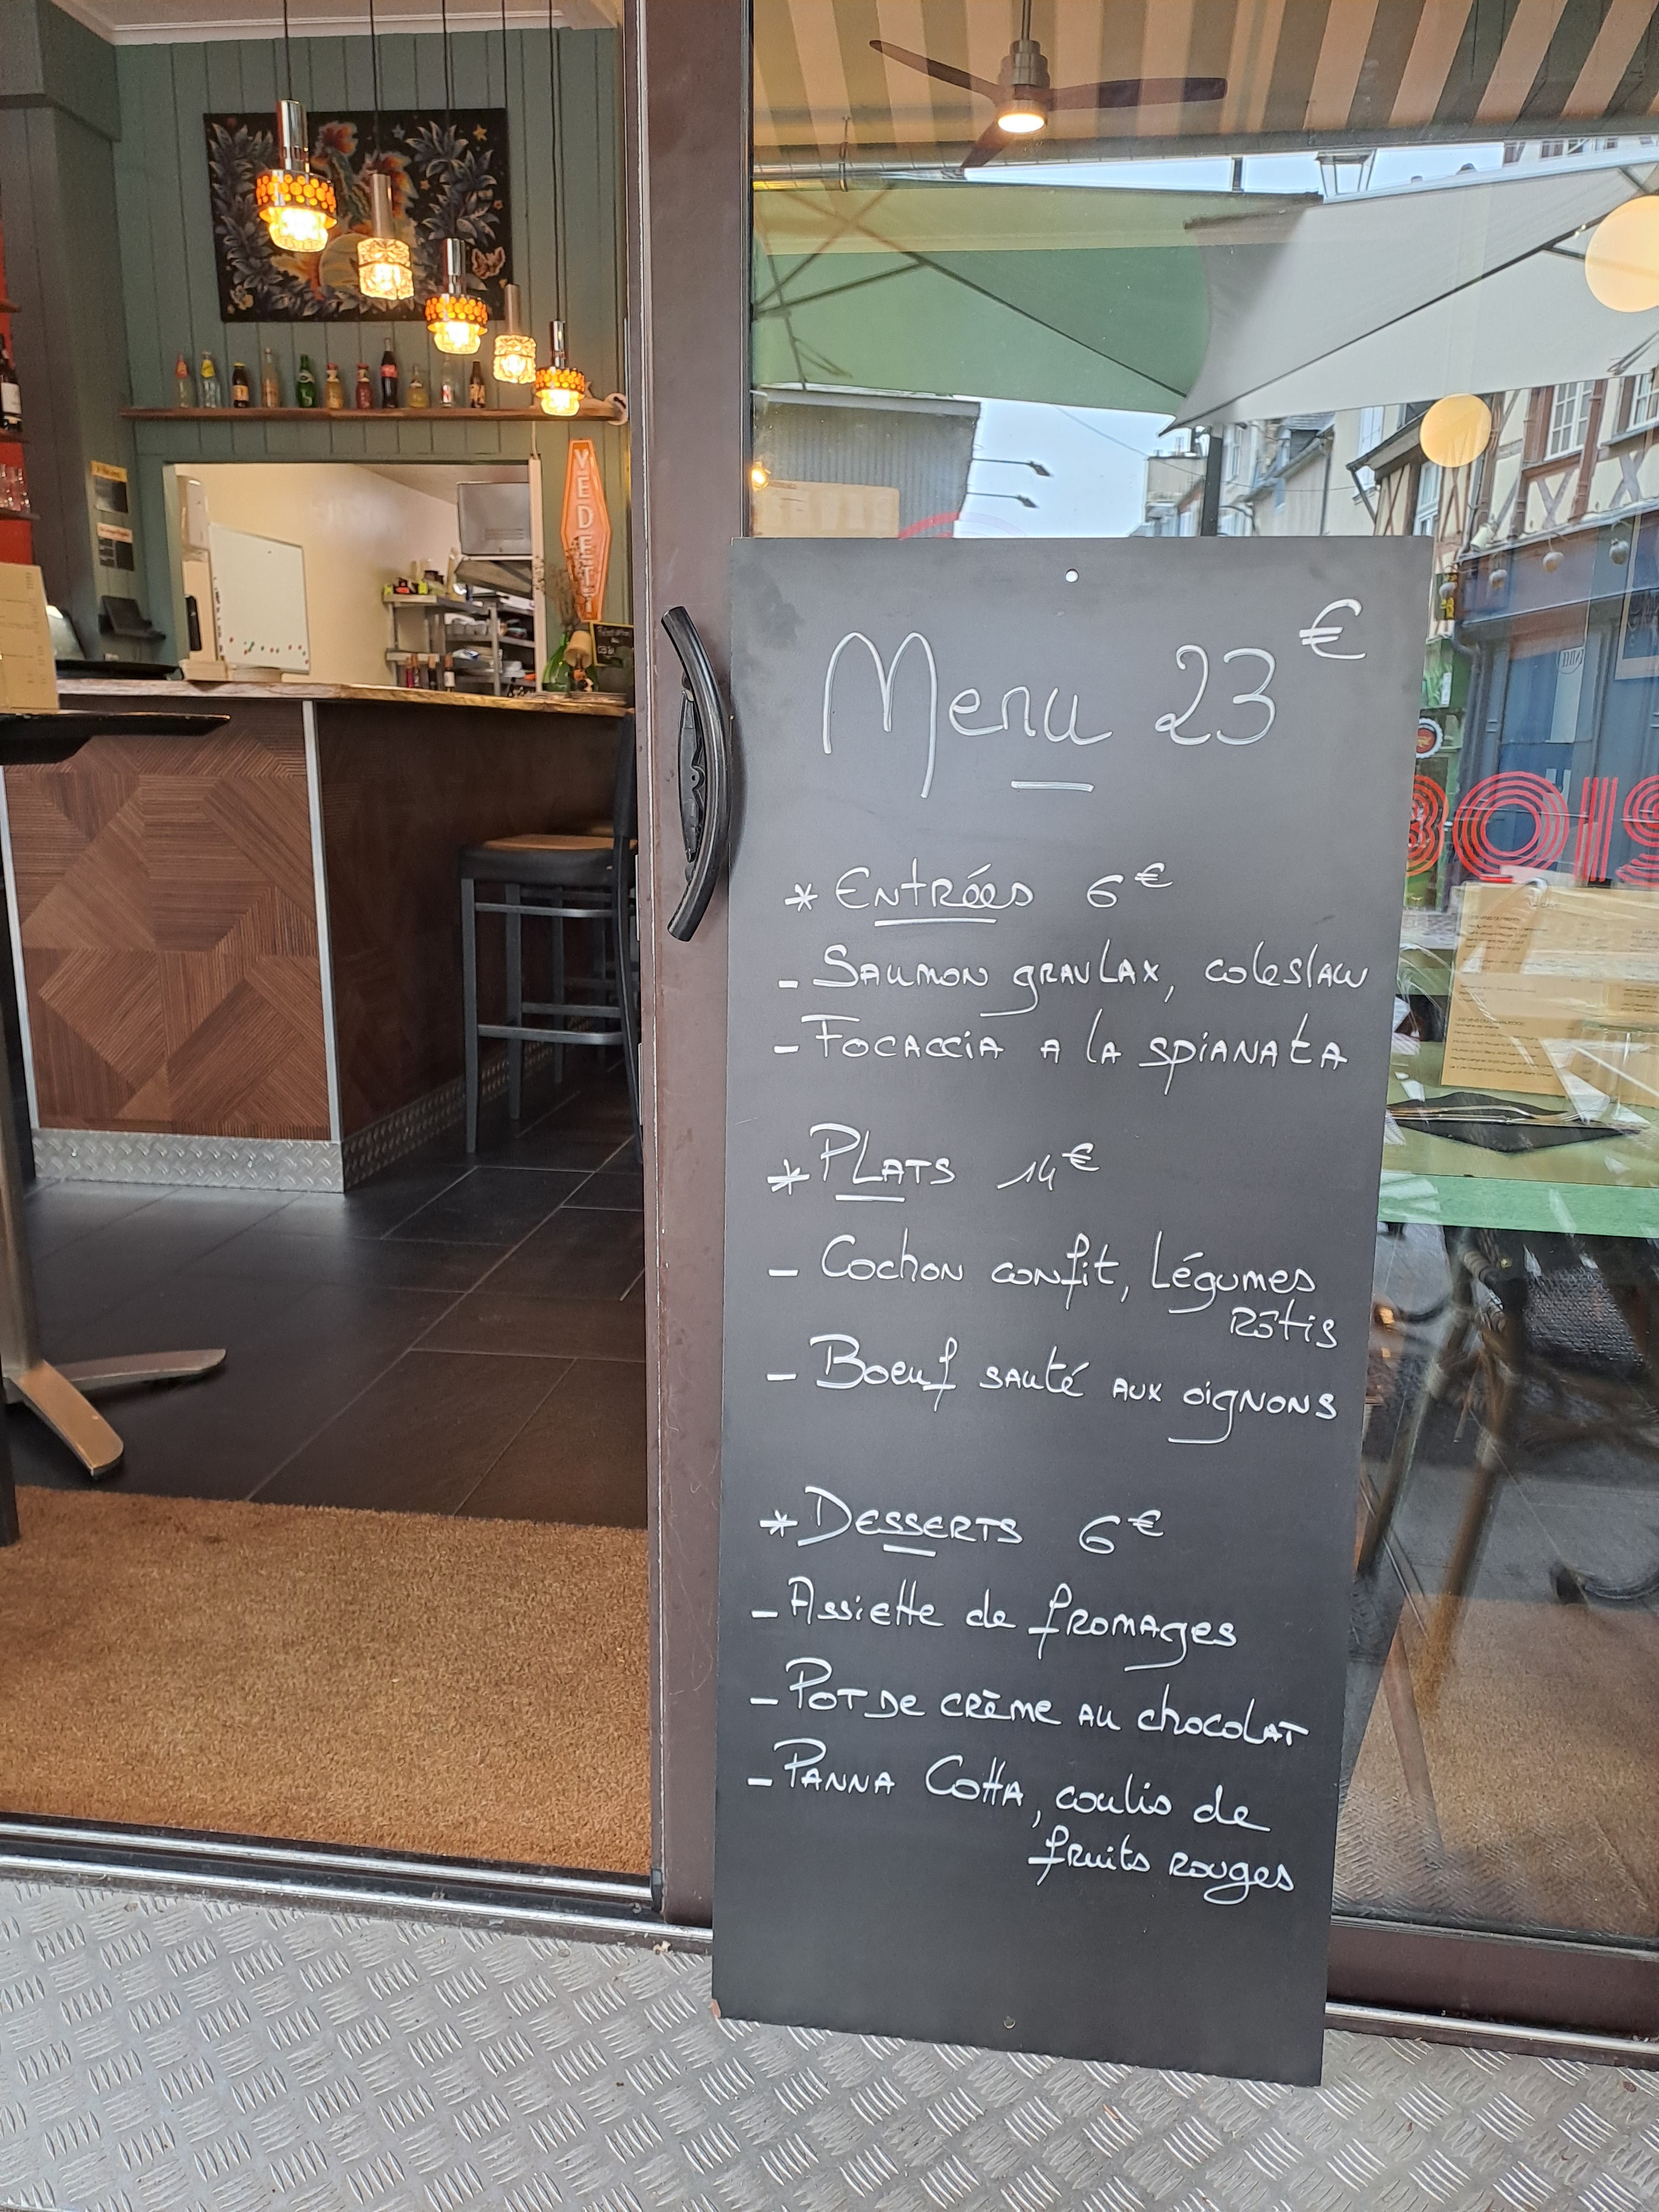 VEDETT
Menu 23 €
* Entrées 6 €
- Saumon gravlax, coleslaw
- Focaccia a la spianata
* Plats 14 €
- Cochon confit, légumes
rôtis
- Boeuf sauté aux oignons
* Desserts 6 €
- Assiette de fromages
- Pot de crème au chocolat
- Panna Cotta, coulis de
fruits rouges